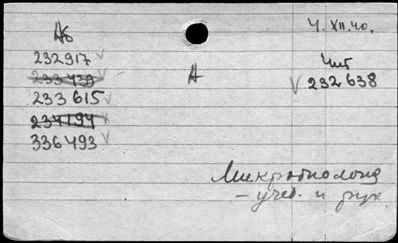 Аб
232917
233439
233615
234194
336493
А
4.XII.40.
Чит
232638
Микробиология
– учеб. и рук.